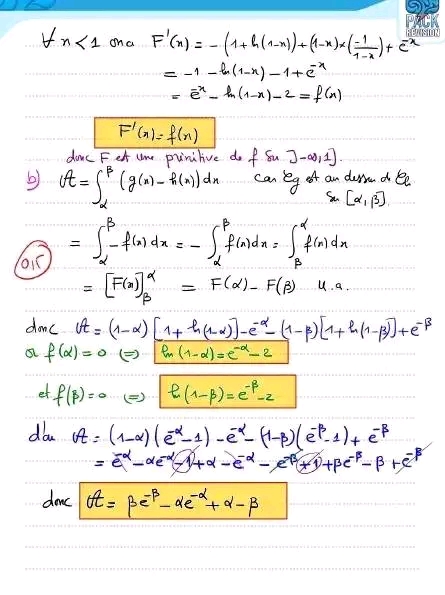 PACK
REVISION
∀ x < 1 on a F'(x) = -(1+ln(1-x)) + (1-x) × (-1/(1-x)) + e^-x
= -1 - ln(1-x) - 1 + e^-x
= e^-x - ln(1-x) - 2 = f(x)
F'(x) = f(x)
donc F est une primitive de f su ]-∞,1].
b) A = ∫_α^β (g(x) - h(x)) dx car Cg est au dessus de Ch
su [α, β].
= ∫_α^β -f(x) dx = -∫_α^β f(x) dx = ∫_β^α f(x) dx
0,5
= [F(x)]_β^α = F(α) - F(β) u.a.
donc A = (1-α)[1+ln(1-α)] - e^-α - (1-β)[1+ln(1-β)] + e^-β
or f(α) = 0 ⇔ ln(1-α) = e^-α - 2
et f(β) = 0 ⇔ ln(1-β) = e^-β - 2
d'où A = (1-α)(e^-α - 1) - e^-α - (1-β)(e^-β - 1) + e^-β
= e^-α - αe^-α - 1 + α - e^-α - e^-β + 1 + βe^-β - β + e^-β
donc A = βe^-β - αe^-α + α - β